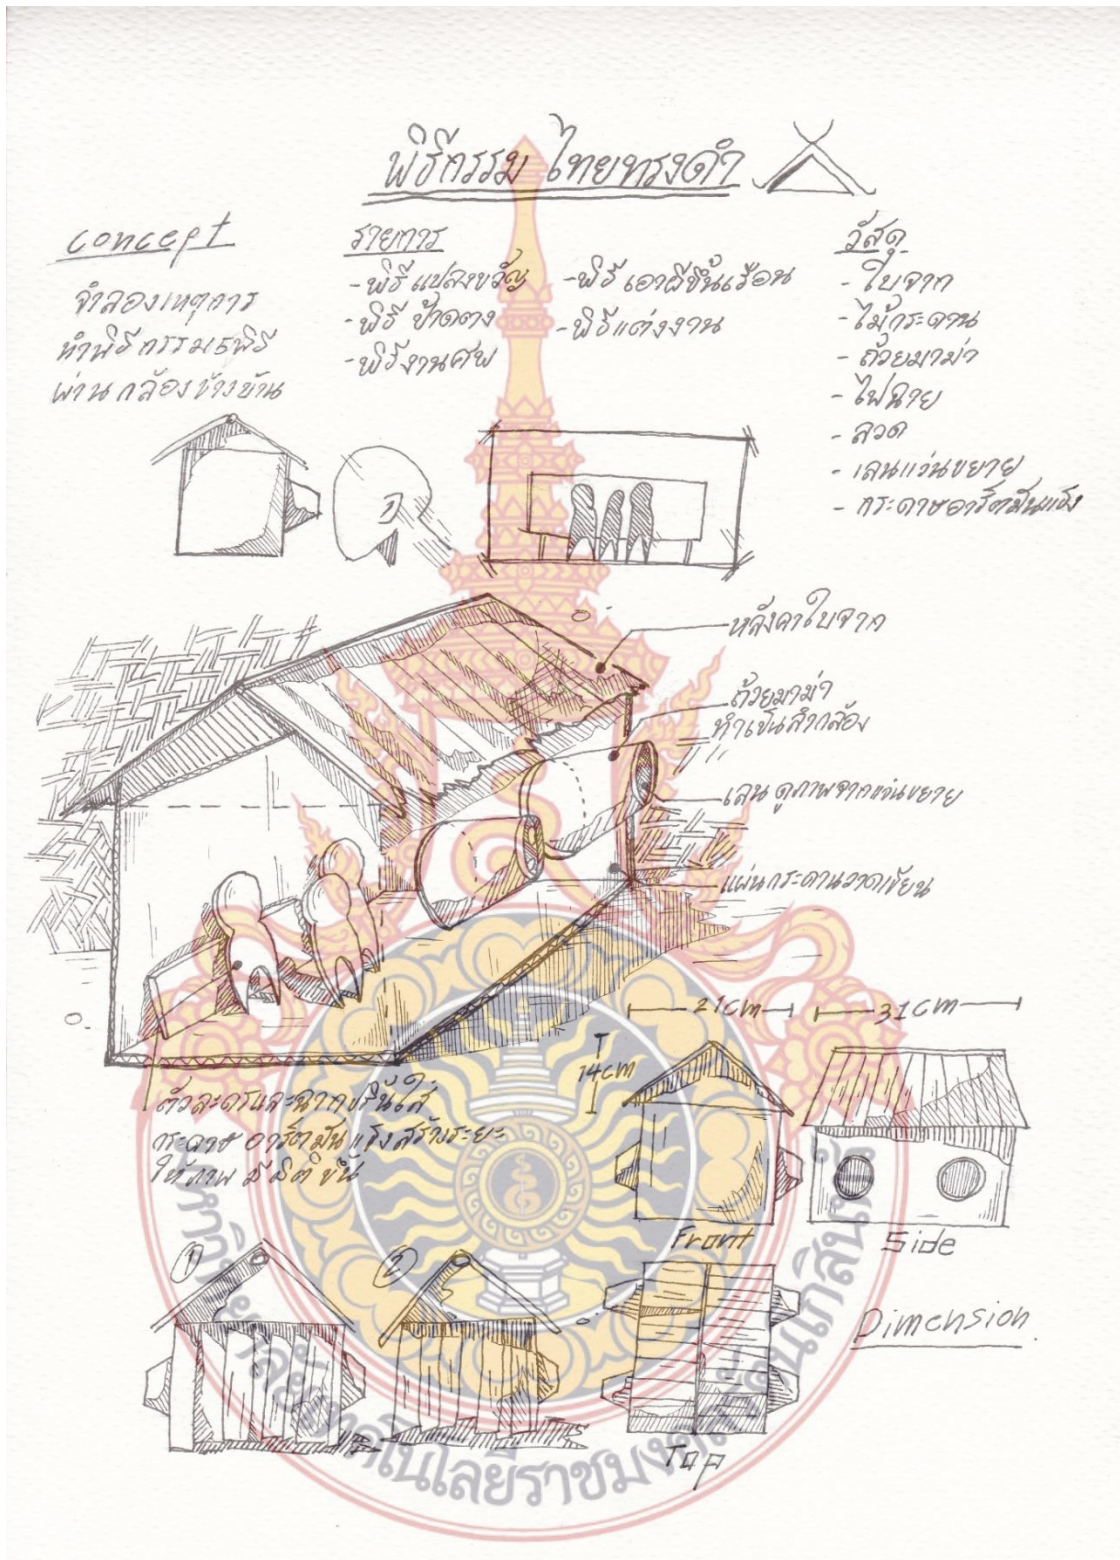 พิธีกรรม ไทยทรงดำ
concept
จำลองเหตุการ
ทำพิธีกรรม 5 พิธี
ผ่านกล้องข้างบ้าน
รายการ
- พิธีแปลงขวัญ
- พิธี ป้าดตง
- พิธีงานศพ
- พิธีเอาผีขึ้นเรือน
- พิธีแต่งงาน
วัสดุ
- ใบจาก
- ไม้กระดาน
- ถ้วยมาม่า
- ไฟฉาย
- ลวด
- เลนแว่นขยาย
- กระดาษอาร์ตมันแข็ง
หลังคาใบจาก
ถ้วยมาม่า
ทำเป็นลำกล้อง
เลนดูภาพจากแว่นขยาย
แผ่นกระดานวาดเขียน
ตัวละครและฉาก
กระดาษ อาร์ตมันแข็งสร้างระยะ
ให้ภาพ มีมิติ ขึ้น
21cm
31cm
14cm
Front
Side
1
2
Top
Dimension